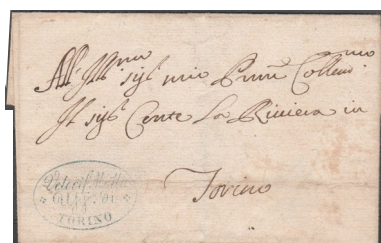 All' Ill.mo sig.r mio P.rone Collen.mo
Il sig.r Conte La Riviera in
Torino
TORINO